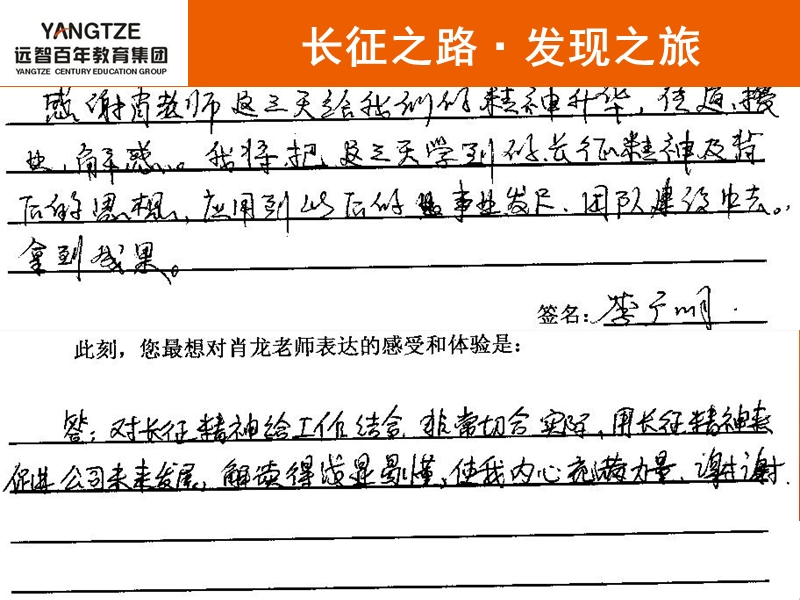 YANGTZE
远智百年教育集团
YANGTZE CENTURY EDUCATION GROUP
长征之路·发现之旅
感谢肖老师这三天给我们的精神升华，传道、授
业、解惑。我将把这三天学到的长征精神及背
后的思想，应用到以后的事业发展、团队建设中去。
拿到成果。
签名：李广明
此刻，您最想对肖龙老师表达的感受和体验是：
答：对长征精神给工作结合 非常切合实际，用长征精神来
促进公司未来发展，解读得浅显易懂，使我内心充满力量，谢谢.